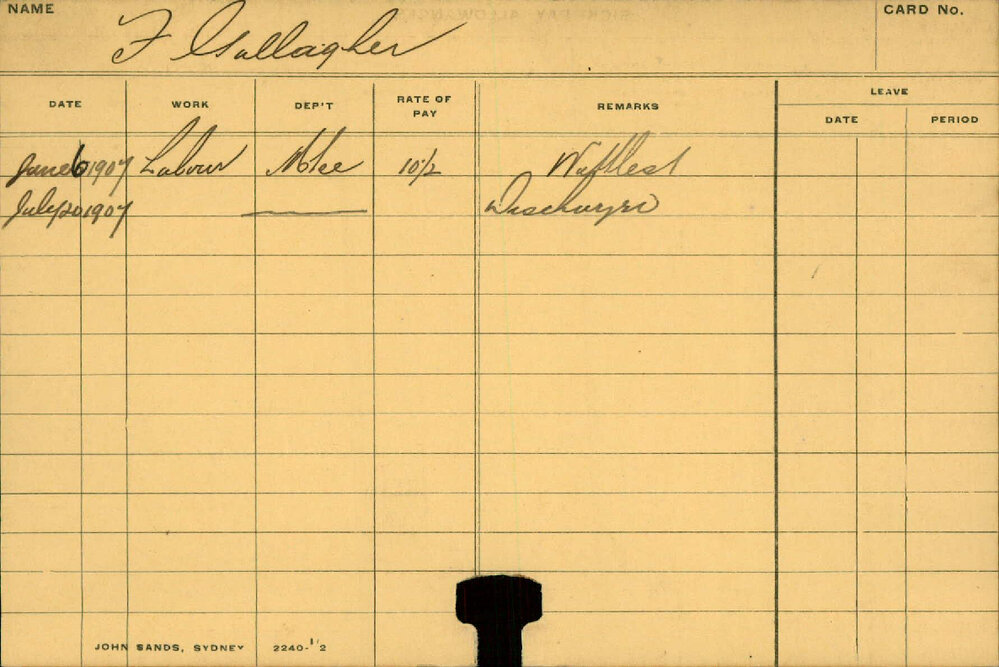 NAME F Gallagher CARD No.
DATE WORK DEP'T RATE OF PAY REMARKS LEAVE
DATE PERIOD
June 6 1907 Labour 10/2
July 20 1907 Discharged
JOHN SANDS, SYDNEY 2240-1/2